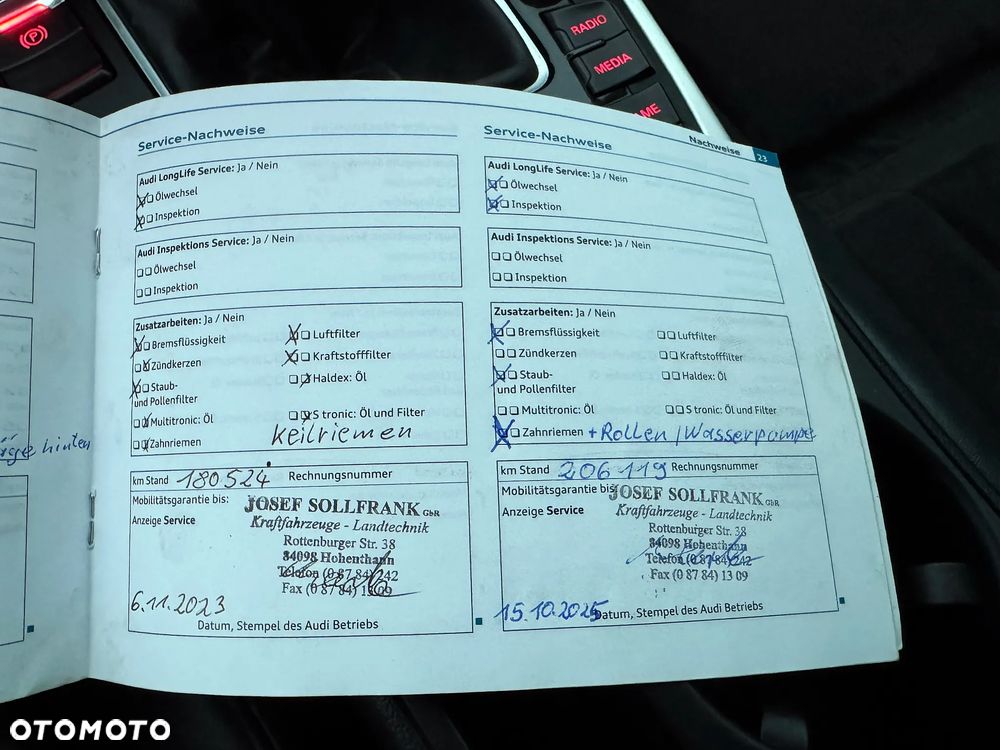 RADIO
MEDIA
(P)
Service-Nachweise
Audi LongLife Service: Ja / Nein
Ölwechsel
Inspektion
Audi Inspektions Service: Ja / Nein
Ölwechsel
Inspektion
Zusatzarbeiten: Ja / Nein
Bremsflüssigkeit
Luftfilter
Zündkerzen
Kraftstofffilter
Staub-
und Pollenfilter
Haldex: Öl
Multitronic: Öl
S tronic: Öl und Filter
Zahnriemen
Keilriemen
km Stand 180524. Rechnungsnummer
Mobilitätsgarantie bis:
Anzeige Service
JOSEF SOLLFRANK GbR
Kraftfahrzeuge - Landtechnik
Rottenburger Str. 38
84098 Hohenthann
Telefon (0 87 84) 242
Fax (0 87 84) 13 09
6.11.2023
Datum, Stempel des Audi Betriebs
hinten
Nachweise 23
Service-Nachweise
Audi LongLife Service: Ja / Nein
Ölwechsel
Inspektion
Audi Inspektions Service: Ja / Nein
Ölwechsel
Inspektion
Zusatzarbeiten: Ja / Nein
Bremsflüssigkeit
Luftfilter
Zündkerzen
Kraftstofffilter
Staub-
und Pollenfilter
Haldex: Öl
Multitronic: Öl
S tronic: Öl und Filter
Zahnriemen + Rollen / Wasserpumpe
km Stand 206 119 Rechnungsnummer
Mobilitätsgarantie bis:
Anzeige Service
JOSEF SOLLFRANK GbR
Kraftfahrzeuge - Landtechnik
Rottenburger Str. 38
84098 Hohenthann
Telefon (0 87 84) 242
Fax (0 87 84) 13 09
15.10.2025
Datum, Stempel des Audi Betriebs
OTOMOTO